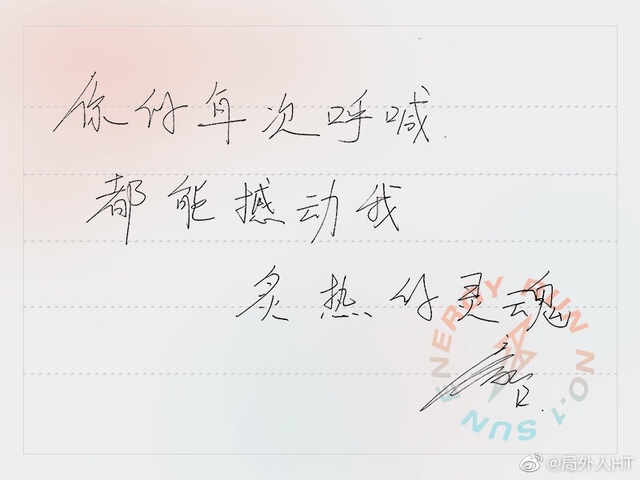 你的每次呼喊
都能撼动我
炙热的灵魂
ENERGY SUN NO.1 SUN
@局外人HT